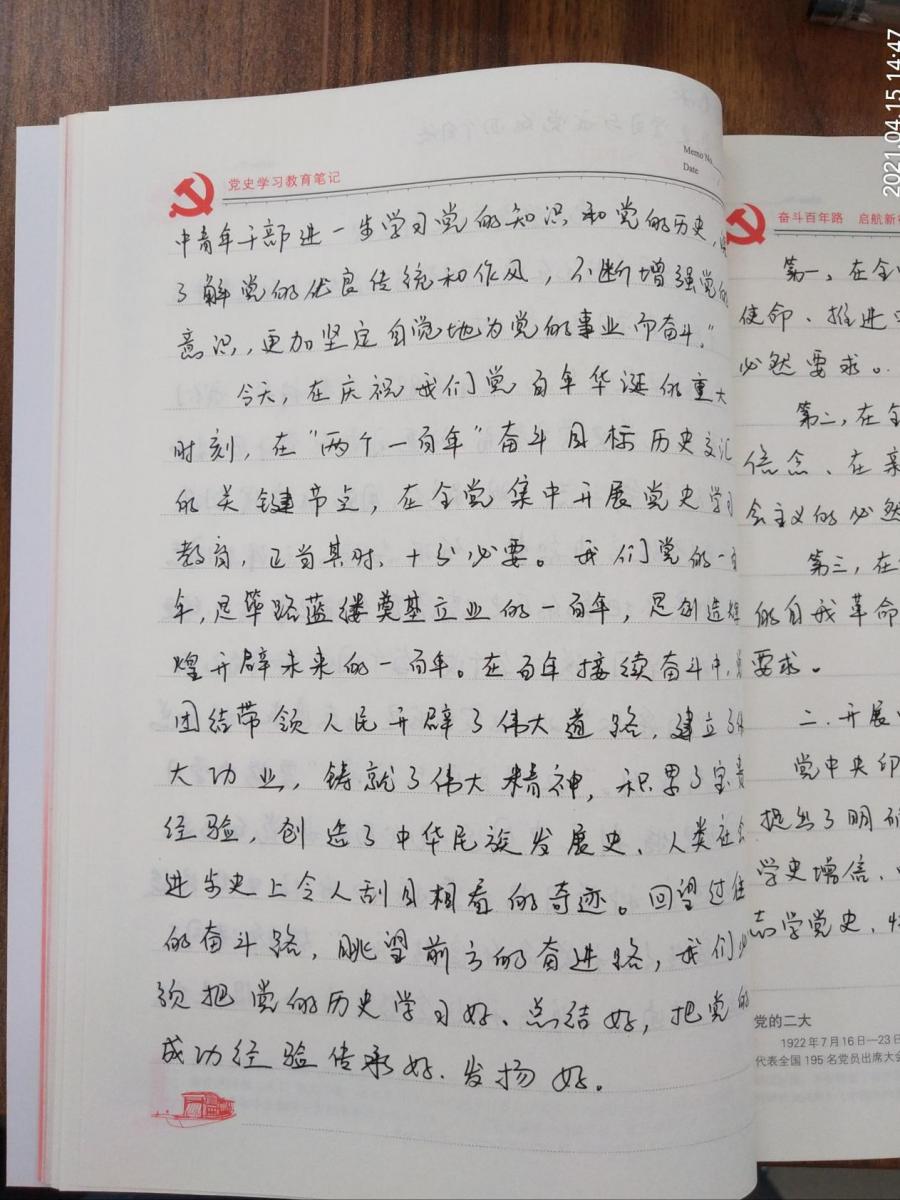 2021.04.15 14:47
Memo No.
Date
党史学习教育笔记
中青年干部进一步学习党的知识和党的历史,
了解党的优良传统和作风,不断增强党的
意识,更加坚定自觉地为党的事业而奋斗。”
今天,在庆祝我们党百年华诞的重大
时刻,在“两个一百年”奋斗目标历史交汇
的关键节点,在全党集中开展党史学习
教育,正当其时、十分必要。我们党的一百
年,是筚路蓝缕奠基立业的一百年,是创造辉
煌开辟未来的一百年。在百年接续奋斗中,
团结带领人民开辟了伟大道路,建立了伟
大功业,铸就了伟大精神,积累了宝贵
经验,创造了中华民族发展史、人类社会
进步史上令人刮目相看的奇迹。回望过往
的奋斗路,眺望前方的奋进路,我们必
须把党的历史学习好、总结好,把党的
成功经验传承好、发扬好。
奋斗百年路 启航新
第一,在全
使命、推进
必然要求。
第二,在全
信念、在
会主义的必然
第三,在
的自我革命
要求。
二、开展
党中央印
提出了明确
学史增信、
志学党史、
党的二大
1922年7月16日—23日
代表全国195名党员出席大会